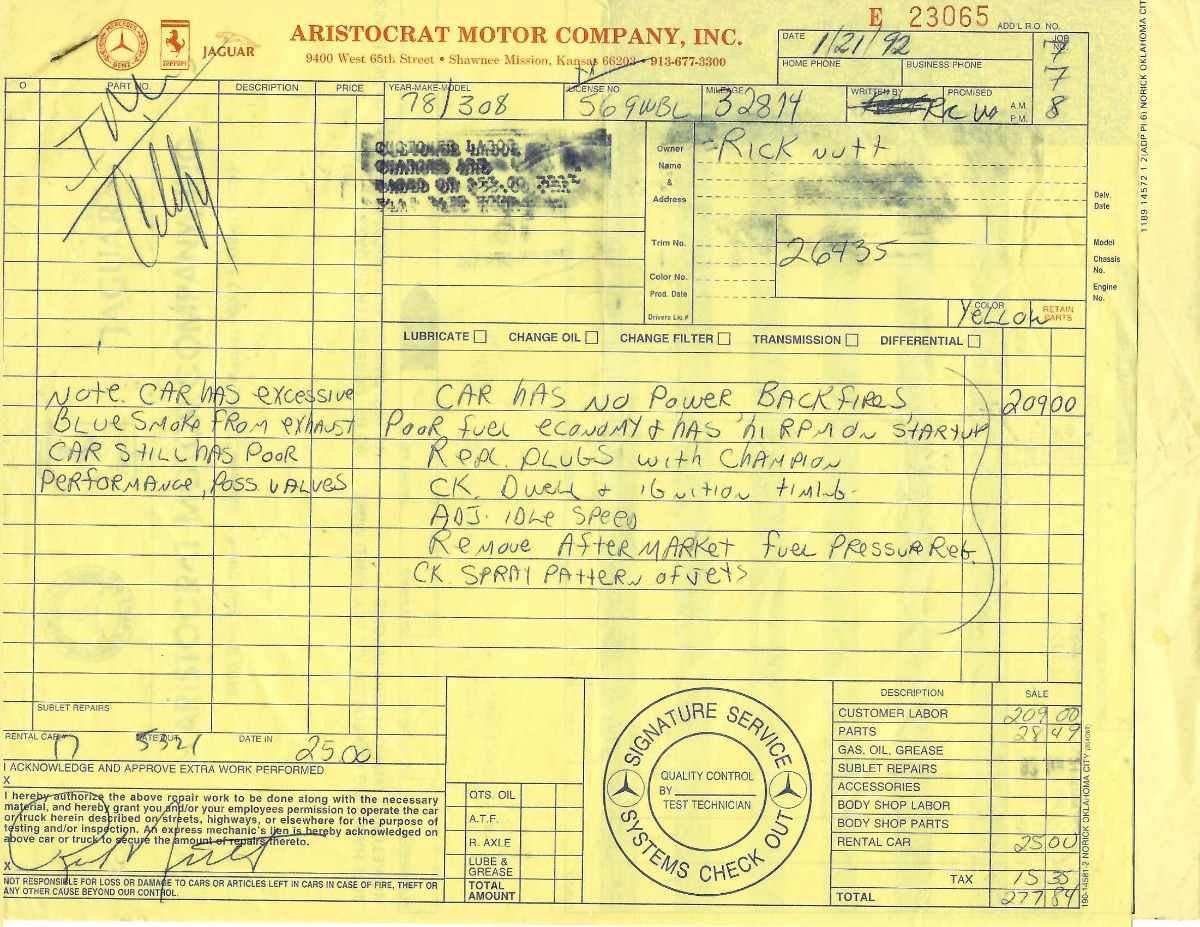 E 23065
ADD'L R.O. NO.
MERCEDES BENZ
Ferrari
JAGUAR
ARISTOCRAT MOTOR COMPANY, INC.
9400 West 65th Street • Shawnee Mission, Kansas 66203 • 913-677-3300
DATE 1/21/92
JOB NO.
7
7
8
HOME PHONE
BUSINESS PHONE
O PART NO. DESCRIPTION PRICE
YEAR-MAKE-MODEL 78/308
LICENSE NO 569WBL
MILEAGE 32874
WRITTEN BY
PROMISED
A.M.
P.M.
CUSTOMER LABOR
CHARGES ARE
BASED ON
Owner
Name
&
Address
RICK NUTT
Delv.
Date
Trim No.
26435
Model
Chassis
No.
Color No.
Engine
No.
Prod. Date
Drivers Lic.#
COLOR YELLOW
RETAIN PARTS
LUBRICATE CHANGE OIL CHANGE FILTER TRANSMISSION DIFFERENTIAL
NOTE. CAR HAS EXCESSIVE
BLUE SMOKE FROM EXHAUST
CAR STILL HAS POOR
PERFORMANCE, POSS. VALVES
CAR HAS NO POWER BACKFIRES,
209 00
POOR FUEL ECONOMY & HAS HI RPM ON STARTUP
REPL. PLUGS WITH CHAMPION
CK. DWELL & IGNITION TIMING
ADJ. IDLE SPEED
REMOVE AFTERMARKET FUEL PRESSURE REG.
CK. SPRAY PATTERN OF JETS
SUBLET REPAIRS
RENTAL CAR# 17
DATE OUT
DATE IN
25.00
I ACKNOWLEDGE AND APPROVE EXTRA WORK PERFORMED
X
I hereby authorize the above repair work to be done along with the necessary
material, and hereby grant you and/or your employees permission to operate the car
or truck herein described on streets, highways, or elsewhere for the purpose of
testing and/or inspection. An express mechanic's lien is hereby acknowledged on
above car or truck to secure the amount of repairs thereto.
X
NOT RESPONSIBLE FOR LOSS OR DAMAGE TO CARS OR ARTICLES LEFT IN CARS IN CASE OF FIRE, THEFT OR
ANY OTHER CAUSE BEYOND OUR CONTROL.
QTS. OIL
A.T.F.
R. AXLE
LUBE &
GREASE
TOTAL
AMOUNT
SIGNATURE SERVICE
QUALITY CONTROL
BY
TEST TECHNICIAN
SYSTEMS CHECK OUT
DESCRIPTION SALE
CUSTOMER LABOR 209 00
PARTS 28 49
GAS, OIL, GREASE
SUBLET REPAIRS
ACCESSORIES
BODY SHOP LABOR
BODY SHOP PARTS
RENTAL CAR 25 00
TAX 15 35
TOTAL 277 84
1189 14572 1 2(ADP PI 6) NORICK OKLAHOMA CITY
190-14581-2 NORICK OKLAHOMA CITY